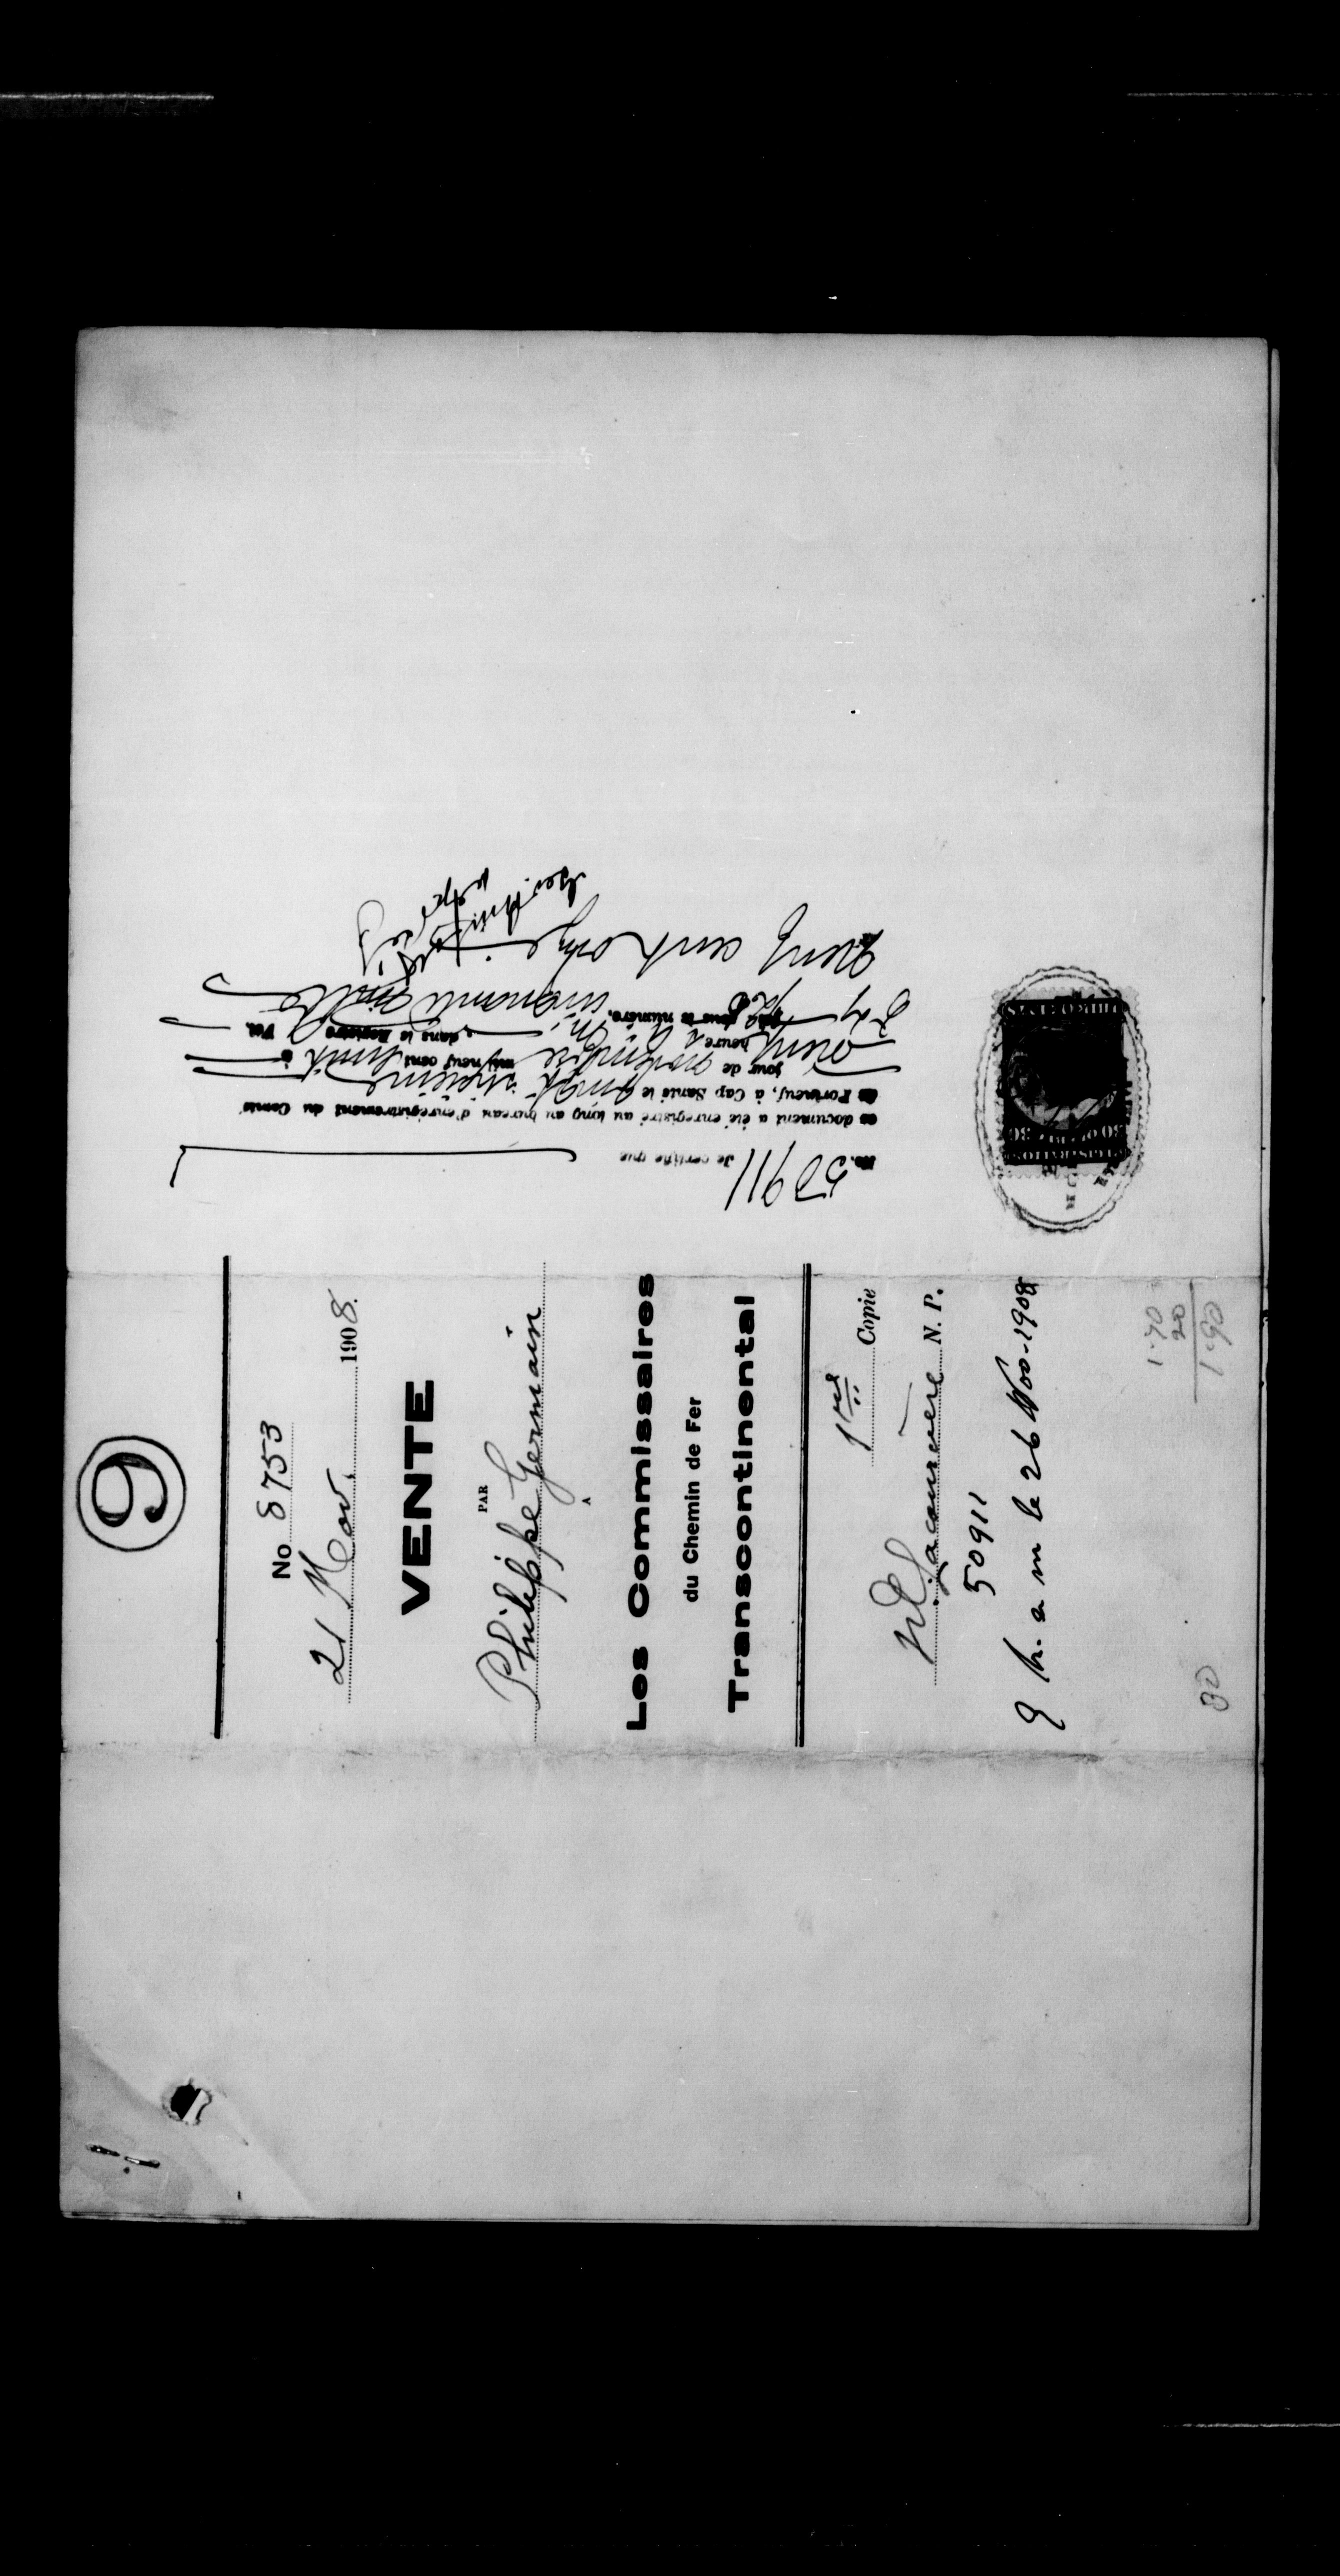 9
No 8753
21 Nov. 1908.
VENTE
PAR
Philippe Germain
A
Les Commissaires
du Chemin de Fer
Transcontinental
1ère Copie
Lacoursière N. P.
50911
9 h. a m le 26 Nov-1908
1.70
20
1.90
80
No. 50911 Je certifie que
ce document a été enregistré au long au bureau d'enregistrement du Comté
de Portneuf, à Cap Santé le vingt sixième
jour de novembre mil neuf cent huit à
neuf heure
dans le Registre Vol.
sous le numéro, cinquante mille
neuf cent onze.